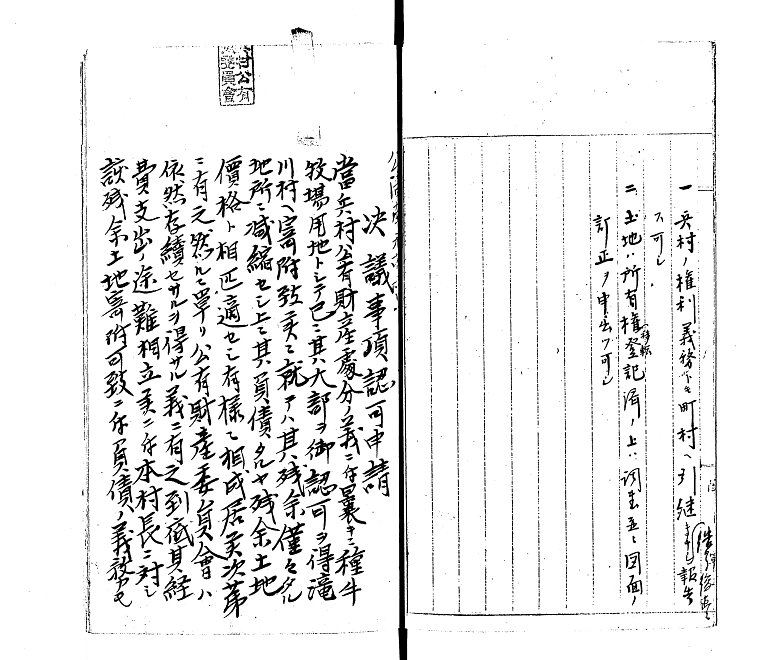 一 兵村ノ権利義務ハ町村ヘ引継
報告
ス可シ
二 土地ハ所有権登記済ノ上ハ調書並ニ図面ノ
移転
訂正ヲ申出ツ可シ
村公有
委員會
決議事項認可申請
當兵村公有財産處分ノ義ニ付曩キニ種牛
牧場用地トシテ已ニ其大部ヲ御認可ヲ得滝
川村ヘ寄附致候ニ就テハ其残余僅々タル
地所ニ減縮セシ上ニ其負債タルヤ残余土地
價格ト相匹適セシ有様ニ相成居候次第
ニ有之然ルニ単リ公有財産委員會ハ
依然存續セサルヲ得サル義ニ有之到底其経
費支出ノ途難相立候ニ付本村長ニ対シ
該残余土地寄附可致ニ付負債ノ義務モ